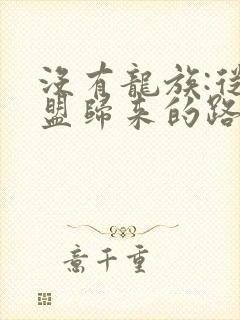 沒有龍族:從
盟歸來的路
意千重